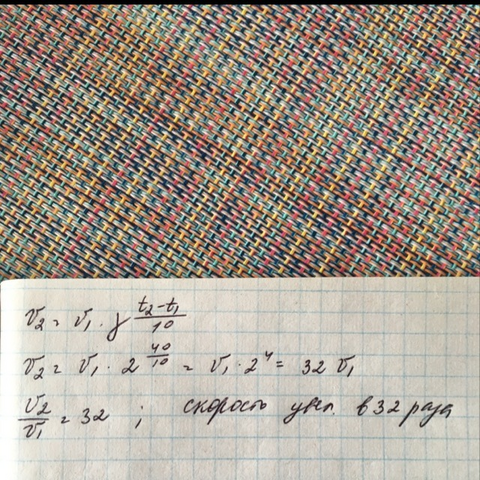 v₂ = v₁ · γ^((t₂-t₁)/10)
v₂ = v₁ · 2^(40/10) = v₁ · 2⁴ = 32 v₁
v₂/v₁ = 32 ; скорость увел. в 32 раза